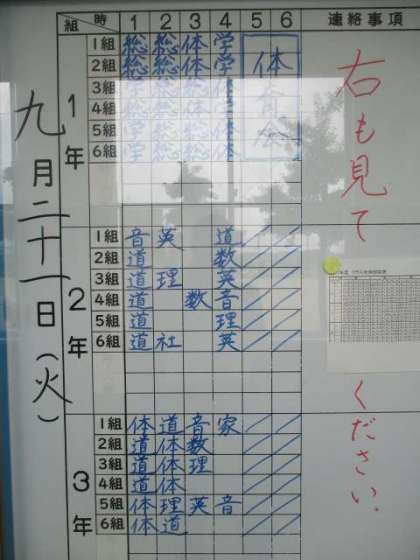 組 時 1 2 3 4 5 6 連絡事項
九月二十一日(火)
1年
1組 総 総 体 学
2組 総 総 体 学
3組 学 総 総 体
4組 学 総 総 体
5組 学 総 総 体
6組 学 総 総 体
体育会
2年
1組 音 英 道
2組 道 数
3組 道 理 英
4組 道 数 音
5組 道 理
6組 道 社 英
3年
1組 体 道 音 家
2組 道 体 数
3組 道 体 理
4組 道 体
5組 体 理 英 音
6組 体 道
右も見て
ください.